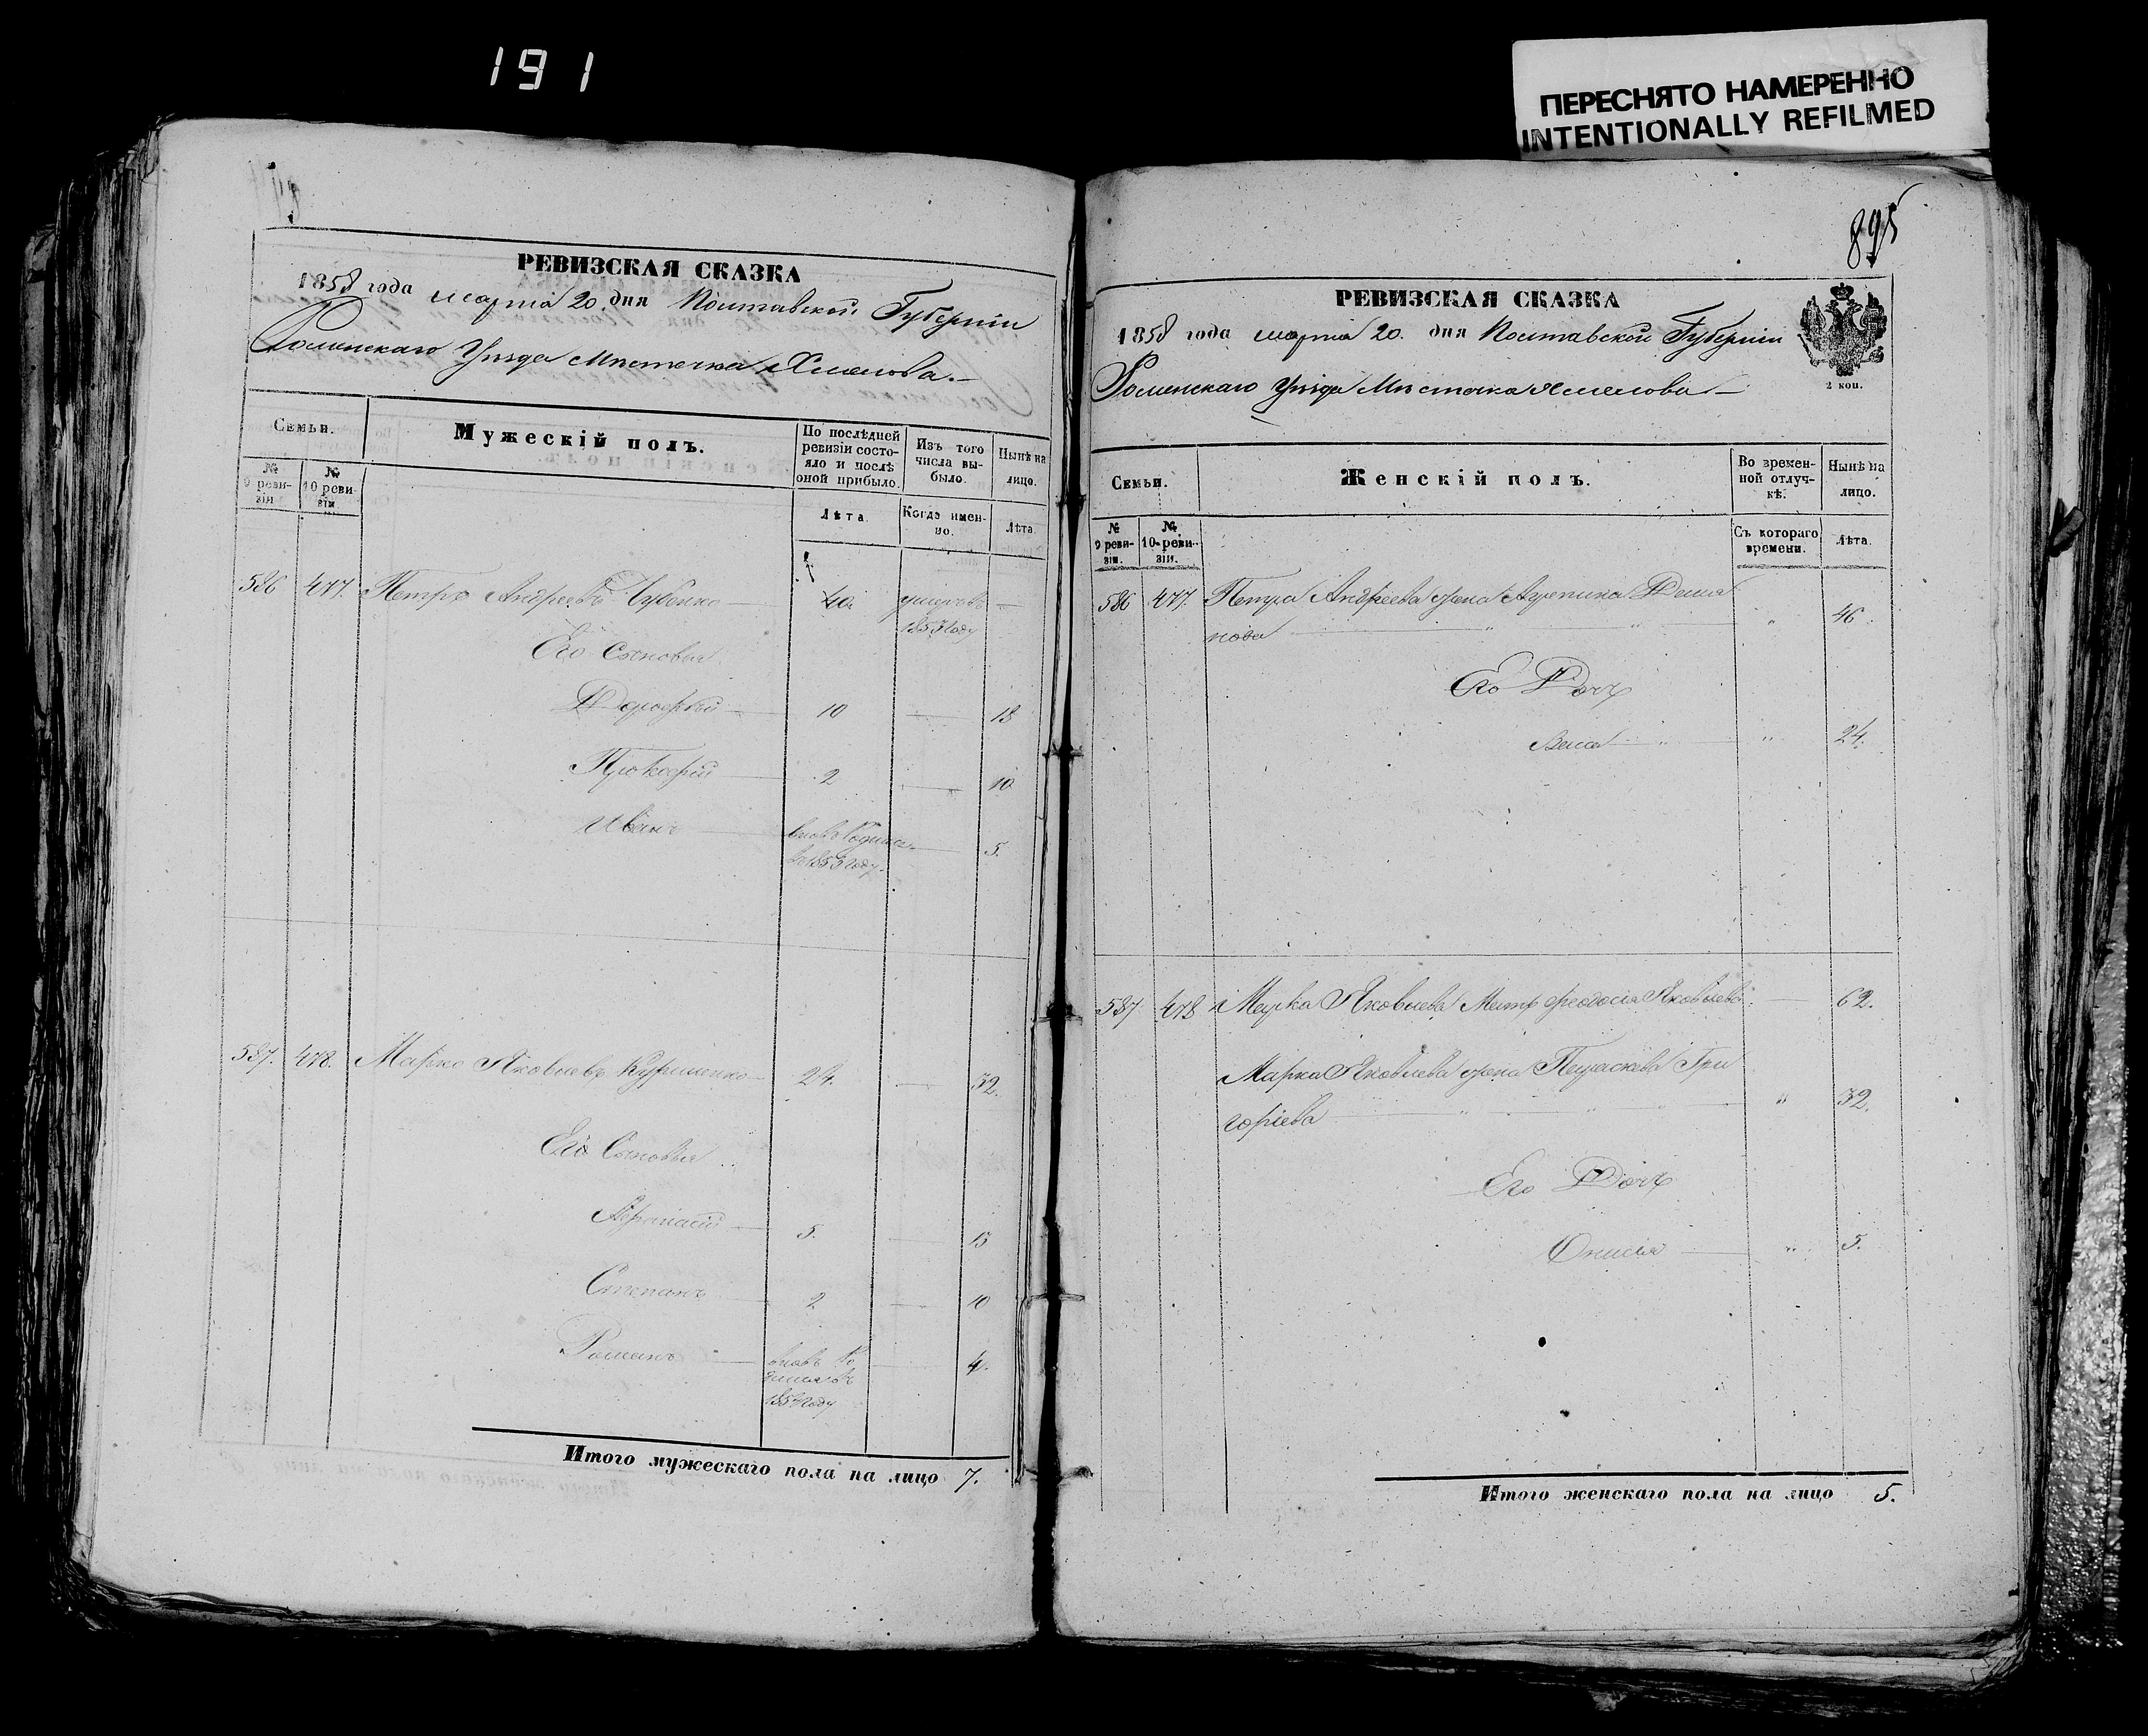 191
ПЕРЕСНЯТО НАМЕРЕННО
INTENTIONALLY REFILMED
РЕВИЗСКАЯ СКАЗКА
1858 года марта 20. дня Полтавской Губернiи
Роменскаго Уѣзда Мѣстечка Хмелова.—
Семьи.
Мужескiй полъ.
По послѣдней ревизiи состояло и послѣ оной прибыло.
Изъ того числа выбыло.
Нынѣ на лицо.
№ 9 ревизiи
№ 10 ревизiи
Лѣта.
Когда именно.
Лѣта
586 477. Петръ Андреевъ 40. умеръ въ —
1853 году
Его Сыновья
Дорофѣй — 10 — 18
Прокофiй — 2 — 10
Иванъ — вновь родился — 5.
въ 1853 году.
587. 478. Марко Яковлевъ — 24. — 32.
Его Сыновья
Афанасiй — 5. — 13
Степанъ — 2 — 10
Романъ — вновь ро — 4.
дился въ
1854 году
Итого мужескаго пола на лицо 7.
895
РЕВИЗСКАЯ СКАЗКА
1858 года марта 20. дня Полтавской Губернiи
2 коп.
Роменскаго Уѣзда Мѣстечка Хмелова —
Семьи.
Женскiй полъ.
Во временной отлучкѣ.
Нынѣ на лицо.
№ 9 ревизiи.
№ 10 ревизiи.
Съ котораго времени.
Лѣта.
586 477. Петра Андреева жена Агрепина Демья
нова — " — " " 46.
Его Дочь
" " 24.
587 478 Марка Яковлева Мать Феодосiя Яковлева — 62.
Марка Яковлева жена Гри
горiева " " 32.
Его Дочь
Онисiя — " 5.
Итого женскаго пола на лицо 5.